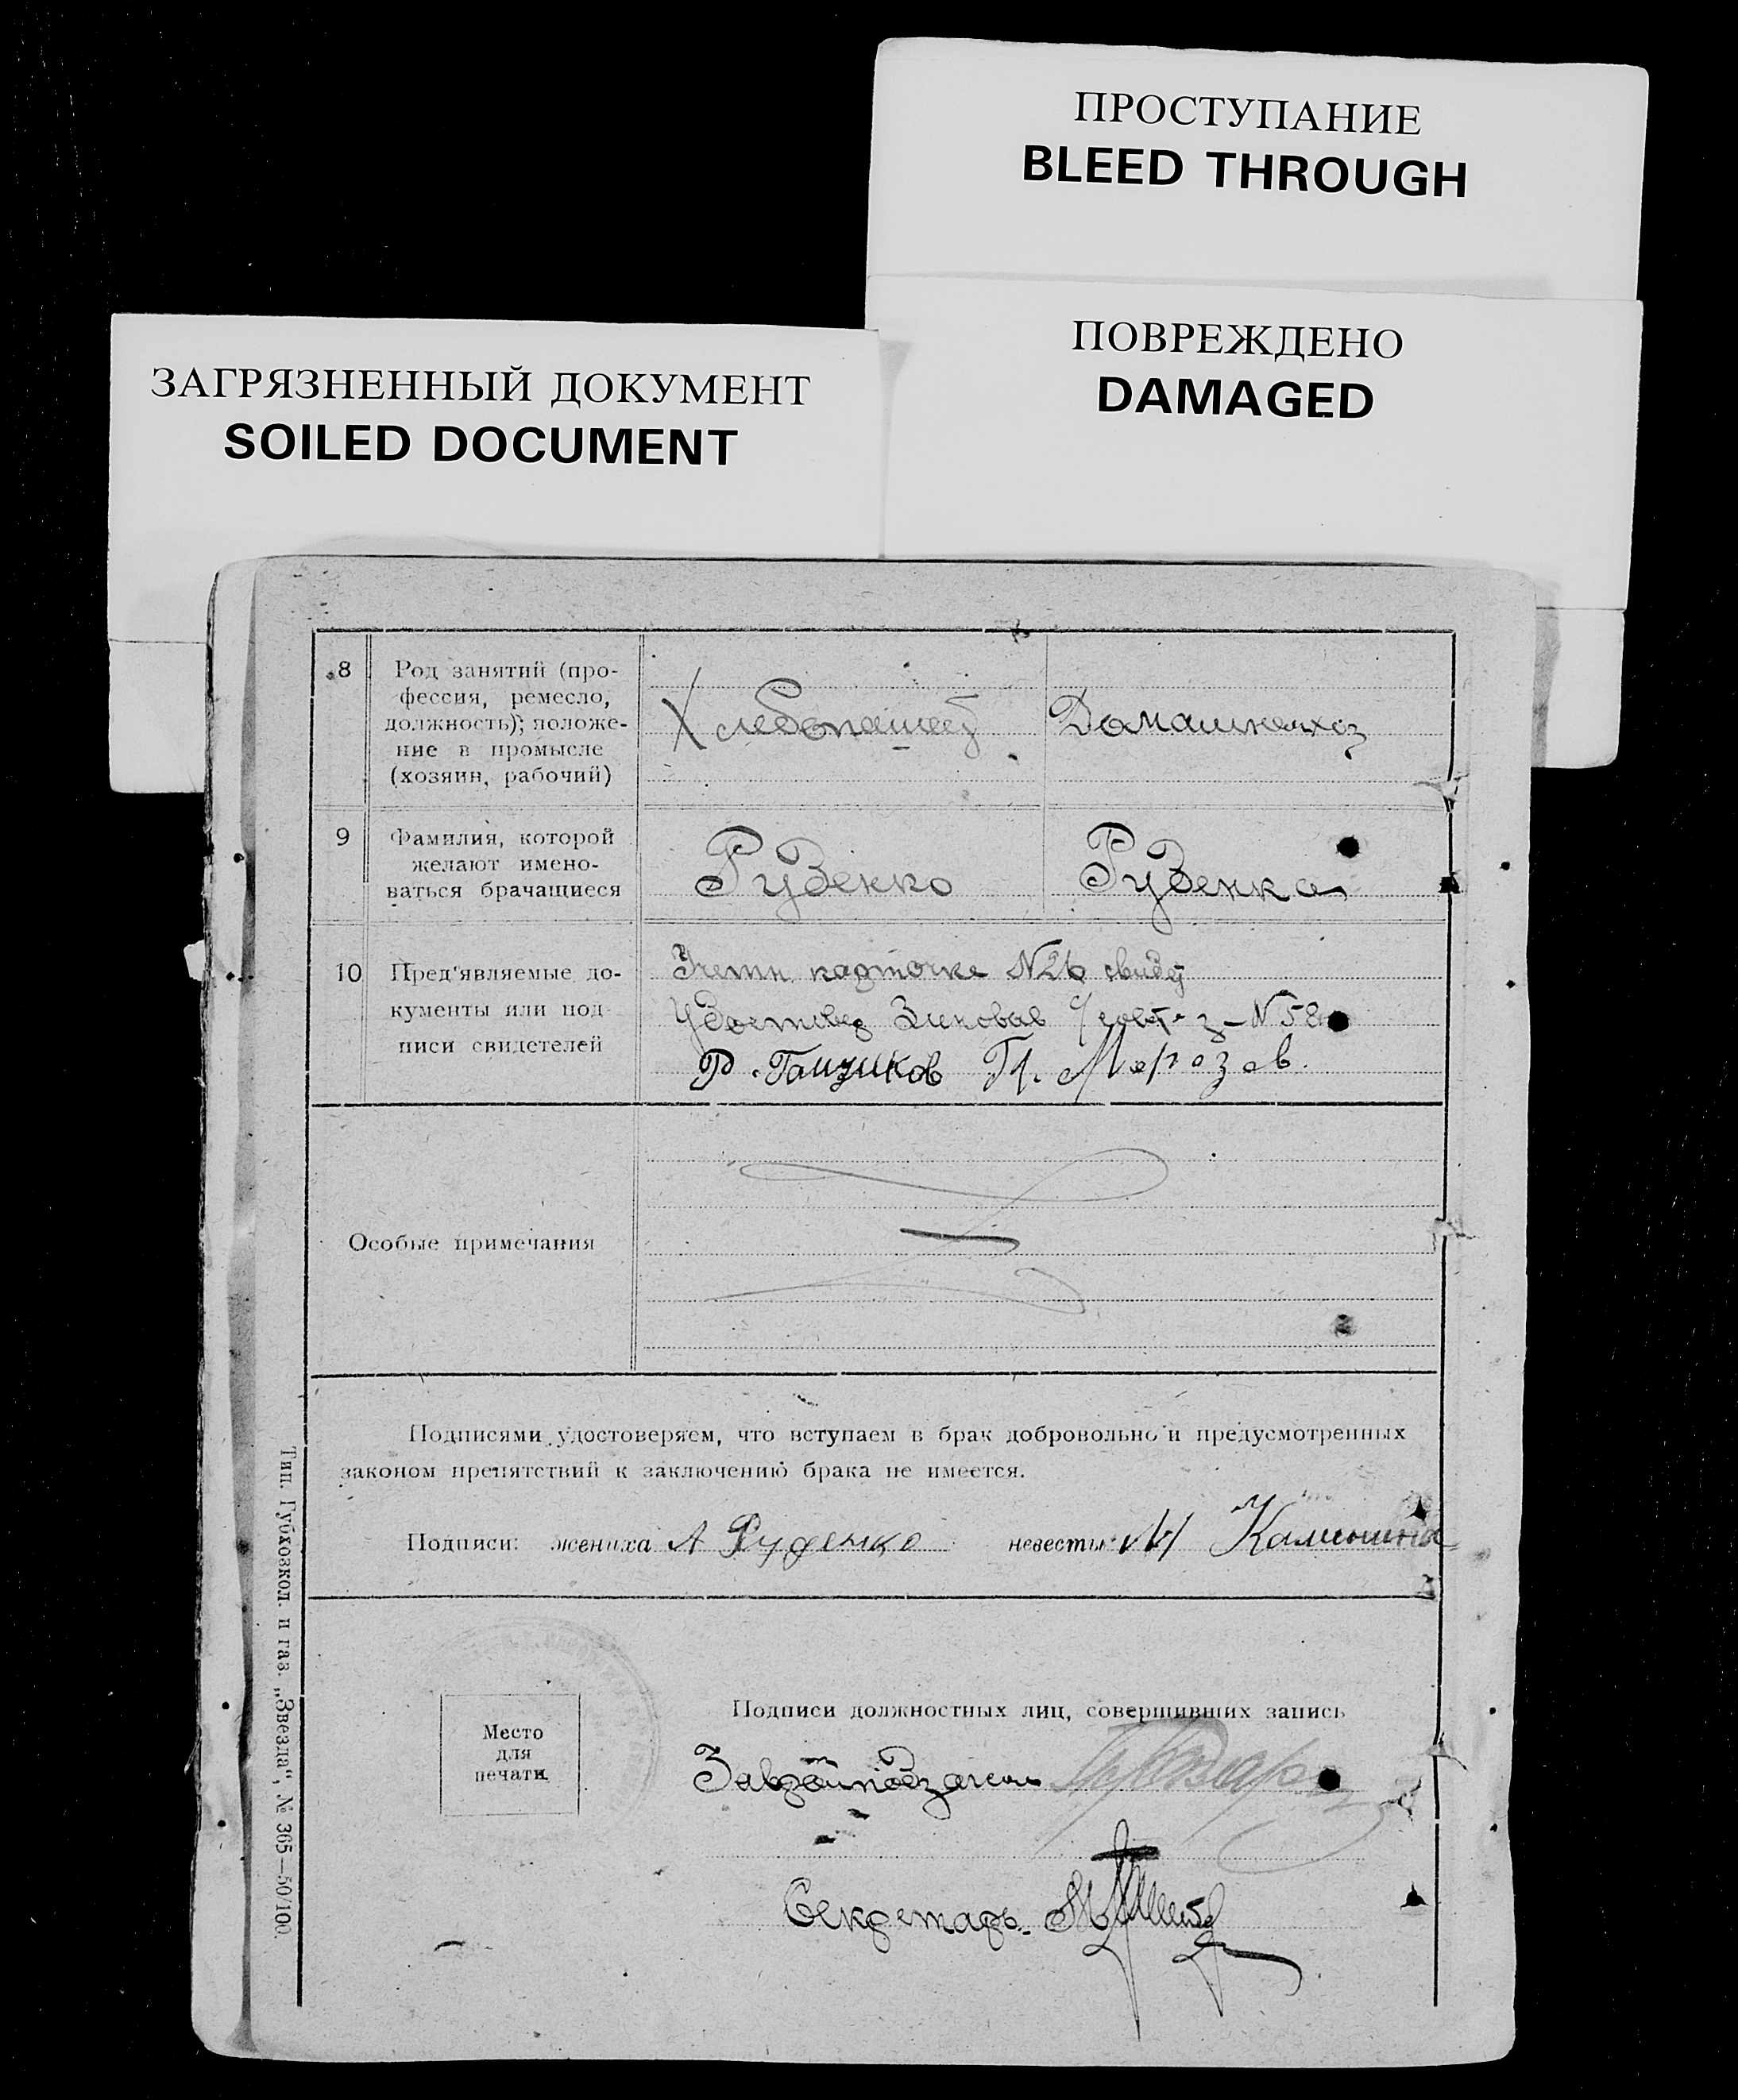 ПРОСТУПАНИЕ
BLEED THROUGH
ПОВРЕЖДЕНО
DAMAGED
ЗАГРЯЗНЕННЫЙ ДОКУМЕНТ
SOILED DOCUMENT
8 Род занятий (про-
фессия, ремесло,
должность); положе-
ние в промысле
(хозяин, рабочий)
Хлебопашец
Домашн хоз
9 Фамилия, которой
желают имено-
ваться брачащиеся
Руденко
Руденко
10 Пред'являемые до-
кументы или под-
писи свидетелей
Учетн карточке №26
№ 58
Р. Гащиков Гр. Морозов.
Особые примечания
Подписями удостоверяем, что вступаем в брак добровольно и предусмотренных
законом препятствий к заключению брака не имеется.
Подписи: жениха А Руденко невесты М Камышина
Место
для
печати
Подписи должностных лиц, совершивших запись
Секретарь
Тип. Губхозкол. и газ. „Звезда“, № 365—50/100.